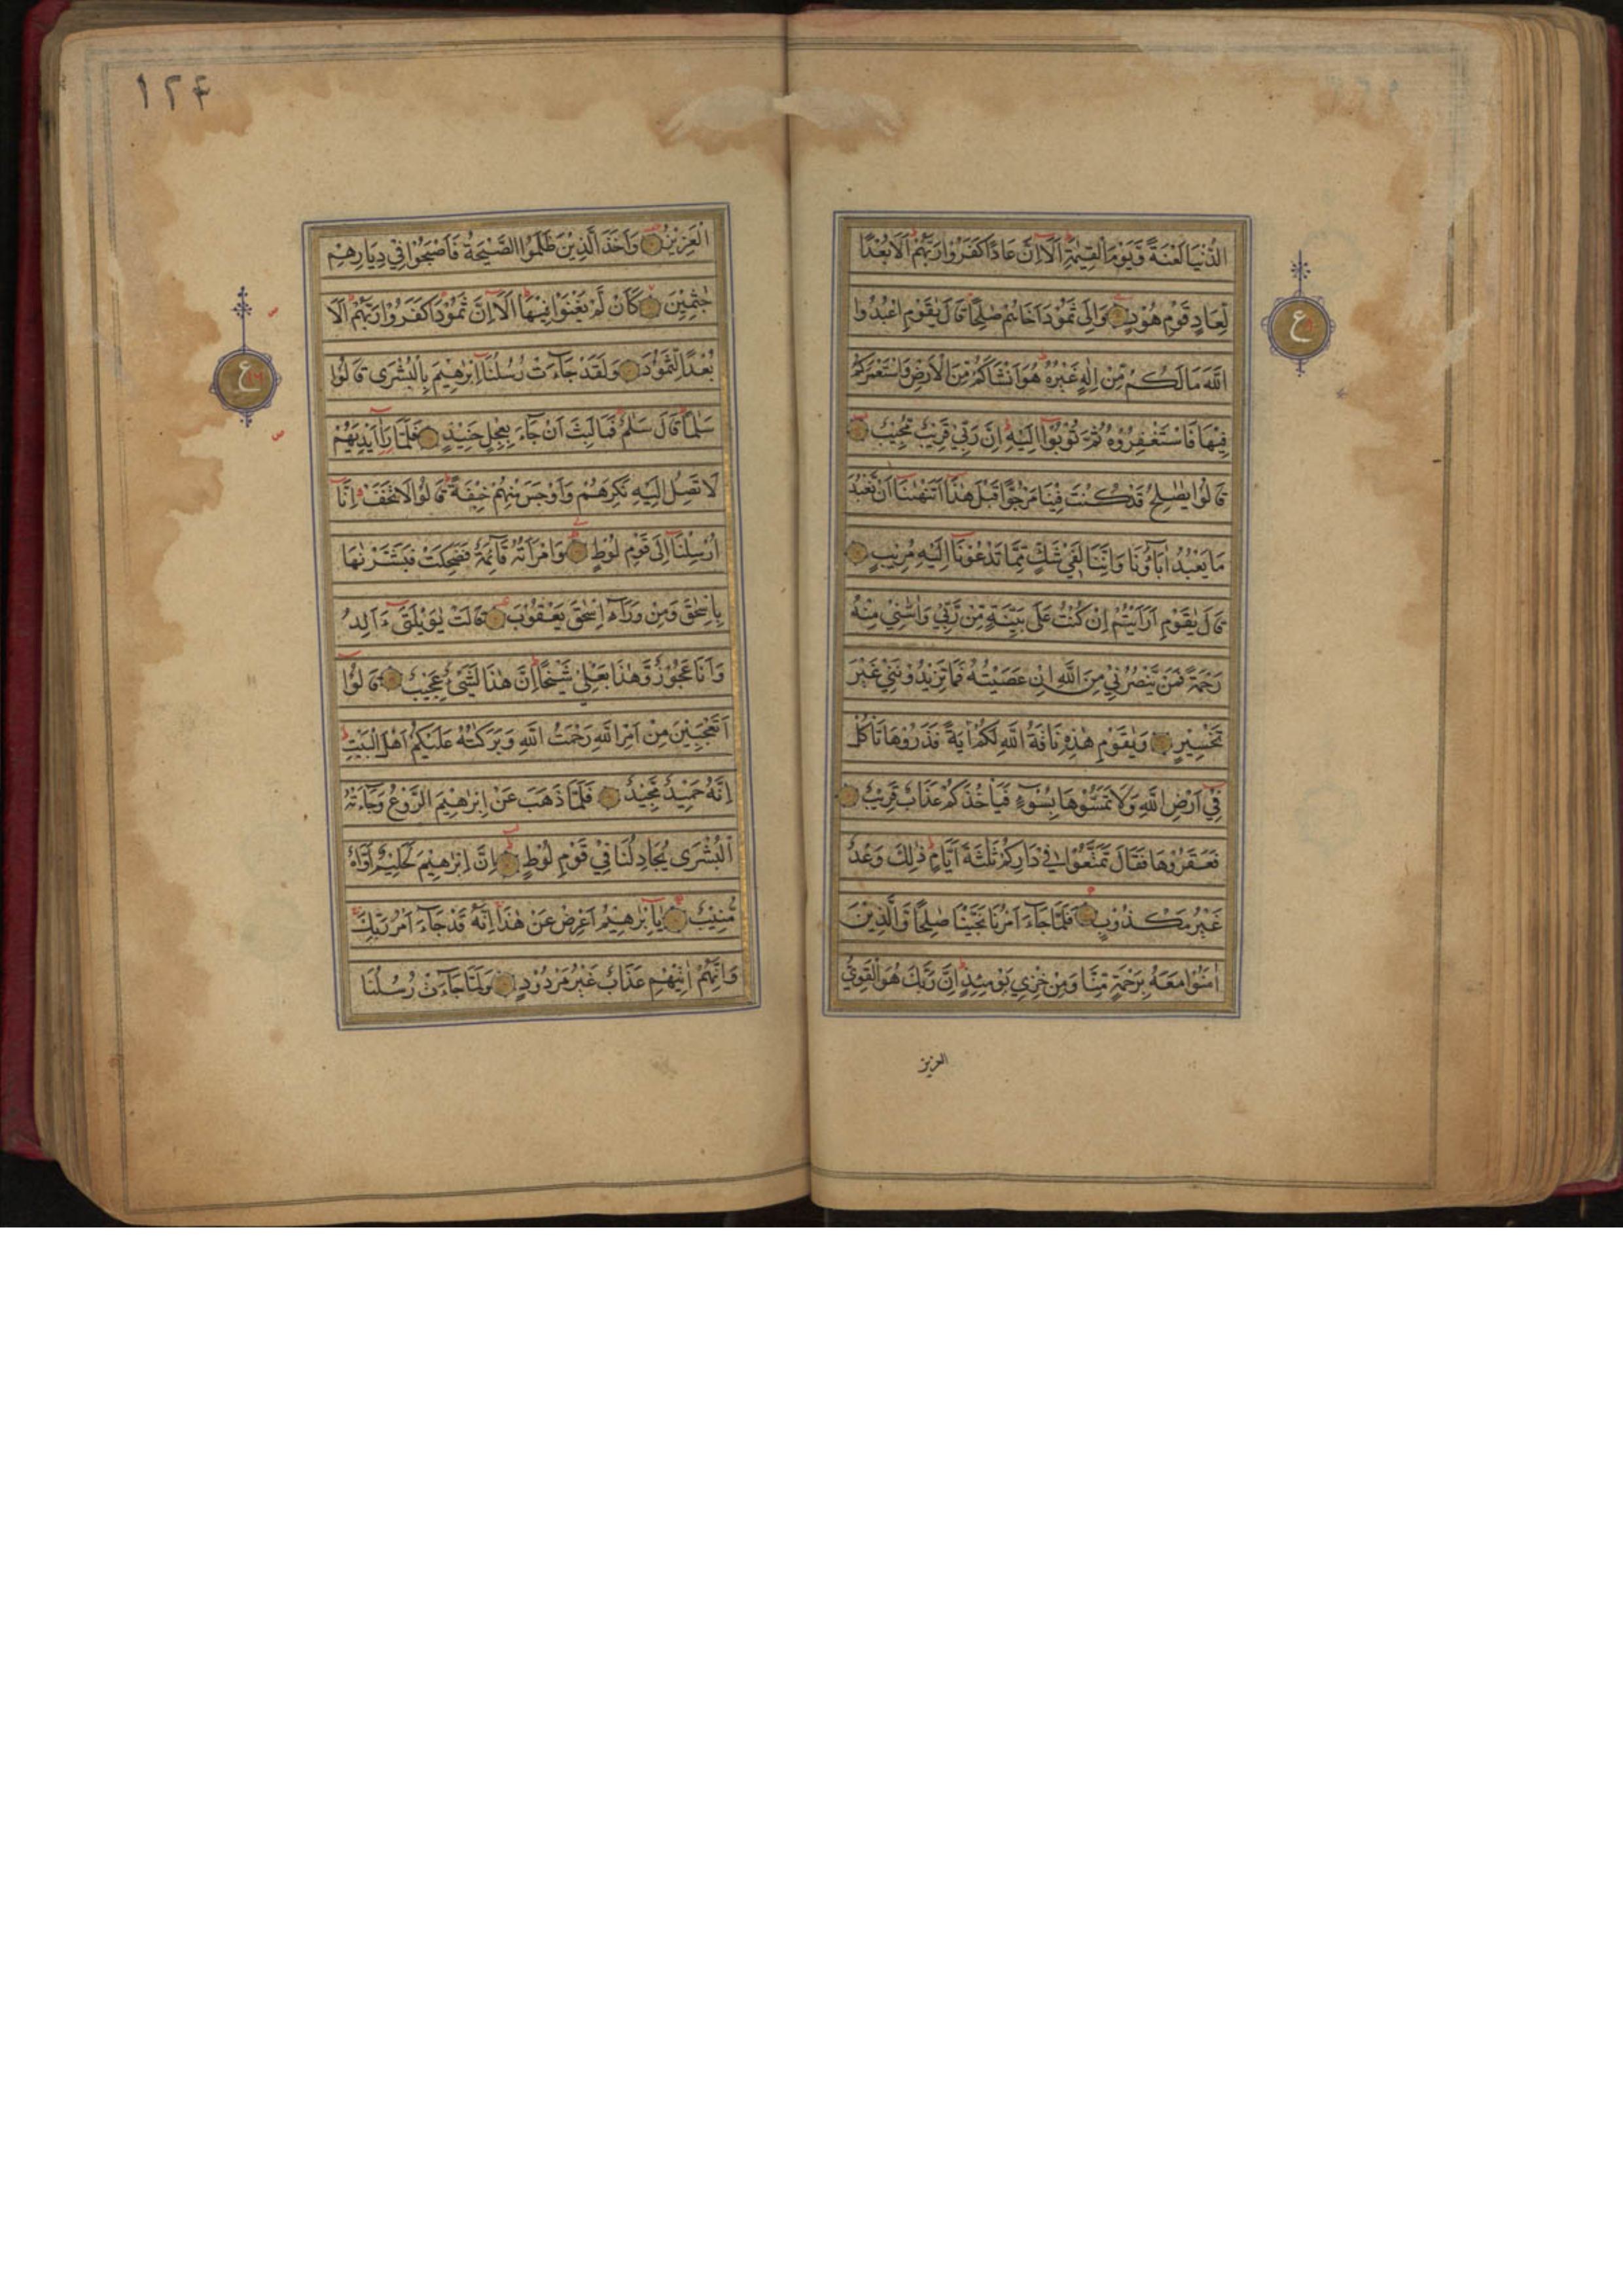 الدُّنْيَا لَعْنَةً وَّيَوْمَ الْقِيٰمَةِ اَلَا اِنَّ عَادًا كَفَرُوْا رَبَّهُمْ اَلَا بُعْدًا
لِّعَادٍ قَوْمِ هُوْدٍ وَاِلٰى ثَمُوْدَ اَخَاهُمْ صٰلِحًا قَالَ يٰقَوْمِ اعْبُدُوا
اللّٰهَ مَا لَكُمْ مِّنْ اِلٰهٍ غَيْرُهٗ هُوَ اَنْشَاَكُمْ مِّنَ الْاَرْضِ وَاسْتَعْمَرَكُمْ
فِيْهَا فَاسْتَغْفِرُوْهُ ثُمَّ تُوْبُوْا اِلَيْهِ اِنَّ رَبِّيْ قَرِيْبٌ مُّجِيْبٌ
قَالُوْا يٰصٰلِحُ قَدْ كُنْتَ فِيْنَا مَرْجُوًّا قَبْلَ هٰذَا اَتَنْهٰىنَا اَنْ نَّعْبُدَ
مَا يَعْبُدُ اٰبَاؤُنَا وَاِنَّنَا لَفِيْ شَكٍّ مِّمَّا تَدْعُوْنَا اِلَيْهِ مُرِيْبٍ
قَالَ يٰقَوْمِ اَرَاَيْتُمْ اِنْ كُنْتُ عَلٰى بَيِّنَةٍ مِّنْ رَّبِّيْ وَاٰتٰىنِيْ مِنْهُ
رَحْمَةً فَمَنْ يَّنْصُرُنِيْ مِنَ اللّٰهِ اِنْ عَصَيْتُهٗ فَمَا تَزِيْدُوْنَنِيْ غَيْرَ
تَخْسِيْرٍ وَيٰقَوْمِ هٰذِهٖ نَاقَةُ اللّٰهِ لَكُمْ اٰيَةً فَذَرُوْهَا تَاْكُلْ
فِيْ اَرْضِ اللّٰهِ وَلَا تَمَسُّوْهَا بِسُوْٓءٍ فَيَاْخُذَكُمْ عَذَابٌ قَرِيْبٌ
فَعَقَرُوْهَا فَقَالَ تَمَتَّعُوْا فِيْ دَارِكُمْ ثَلٰثَةَ اَيَّامٍ ذٰلِكَ وَعْدٌ
غَيْرُ مَكْذُوْبٍ فَلَمَّا جَآءَ اَمْرُنَا نَجَّيْنَا صٰلِحًا وَّالَّذِيْنَ
اٰمَنُوْا مَعَهٗ بِرَحْمَةٍ مِّنَّا وَمِنْ خِزْيِ يَوْمِئِذٍ اِنَّ رَبَّكَ هُوَ الْقَوِيُّ
العزيز
ع
١٢٤
الْعَزِيْزُ وَاَخَذَ الَّذِيْنَ ظَلَمُوا الصَّيْحَةُ فَاَصْبَحُوْا فِيْ دِيَارِهِمْ
جٰثِمِيْنَ كَاَنْ لَّمْ يَغْنَوْا فِيْهَا اَلَا اِنَّ ثَمُوْدَا كَفَرُوْا رَبَّهُمْ اَلَا
بُعْدًا لِّثَمُوْدَ وَلَقَدْ جَآءَتْ رُسُلُنَا اِبْرٰهِيْمَ بِالْبُشْرٰى قَالُوْا
سَلٰمًا قَالَ سَلٰمٌ فَمَا لَبِثَ اَنْ جَآءَ بِعِجْلٍ حَنِيْذٍ فَلَمَّا رَاٰ اَيْدِيَهُمْ
لَا تَصِلُ اِلَيْهِ نَكِرَهُمْ وَاَوْجَسَ مِنْهُمْ خِيْفَةً قَالُوْا لَا تَخَفْ اِنَّا
اُرْسِلْنَا اِلٰى قَوْمِ لُوْطٍ وَامْرَاَتُهٗ قَآئِمَةٌ فَضَحِكَتْ فَبَشَّرْنٰهَا
بِاِسْحٰقَ وَمِنْ وَّرَآءِ اِسْحٰقَ يَعْقُوْبَ قَالَتْ يٰوَيْلَتٰى ءَاَلِدُ
وَاَنَا عَجُوْزٌ وَّهٰذَا بَعْلِيْ شَيْخًا اِنَّ هٰذَا لَشَيْءٌ عَجِيْبٌ قَالُوْا
اَتَعْجَبِيْنَ مِنْ اَمْرِ اللّٰهِ رَحْمَتُ اللّٰهِ وَبَرَكٰتُهٗ عَلَيْكُمْ اَهْلَ الْبَيْتِ
اِنَّهٗ حَمِيْدٌ مَّجِيْدٌ فَلَمَّا ذَهَبَ عَنْ اِبْرٰهِيْمَ الرَّوْعُ وَجَآءَتْهُ
الْبُشْرٰى يُجَادِلُنَا فِيْ قَوْمِ لُوْطٍ اِنَّ اِبْرٰهِيْمَ لَحَلِيْمٌ اَوَّاهٌ
مُّنِيْبٌ يٰاِبْرٰهِيْمُ اَعْرِضْ عَنْ هٰذَا اِنَّهٗ قَدْ جَآءَ اَمْرُ رَبِّكَ
وَاِنَّهُمْ اٰتِيْهِمْ عَذَابٌ غَيْرُ مَرْدُوْدٍ وَلَمَّا جَآءَتْ رُسُلُنَا
ع